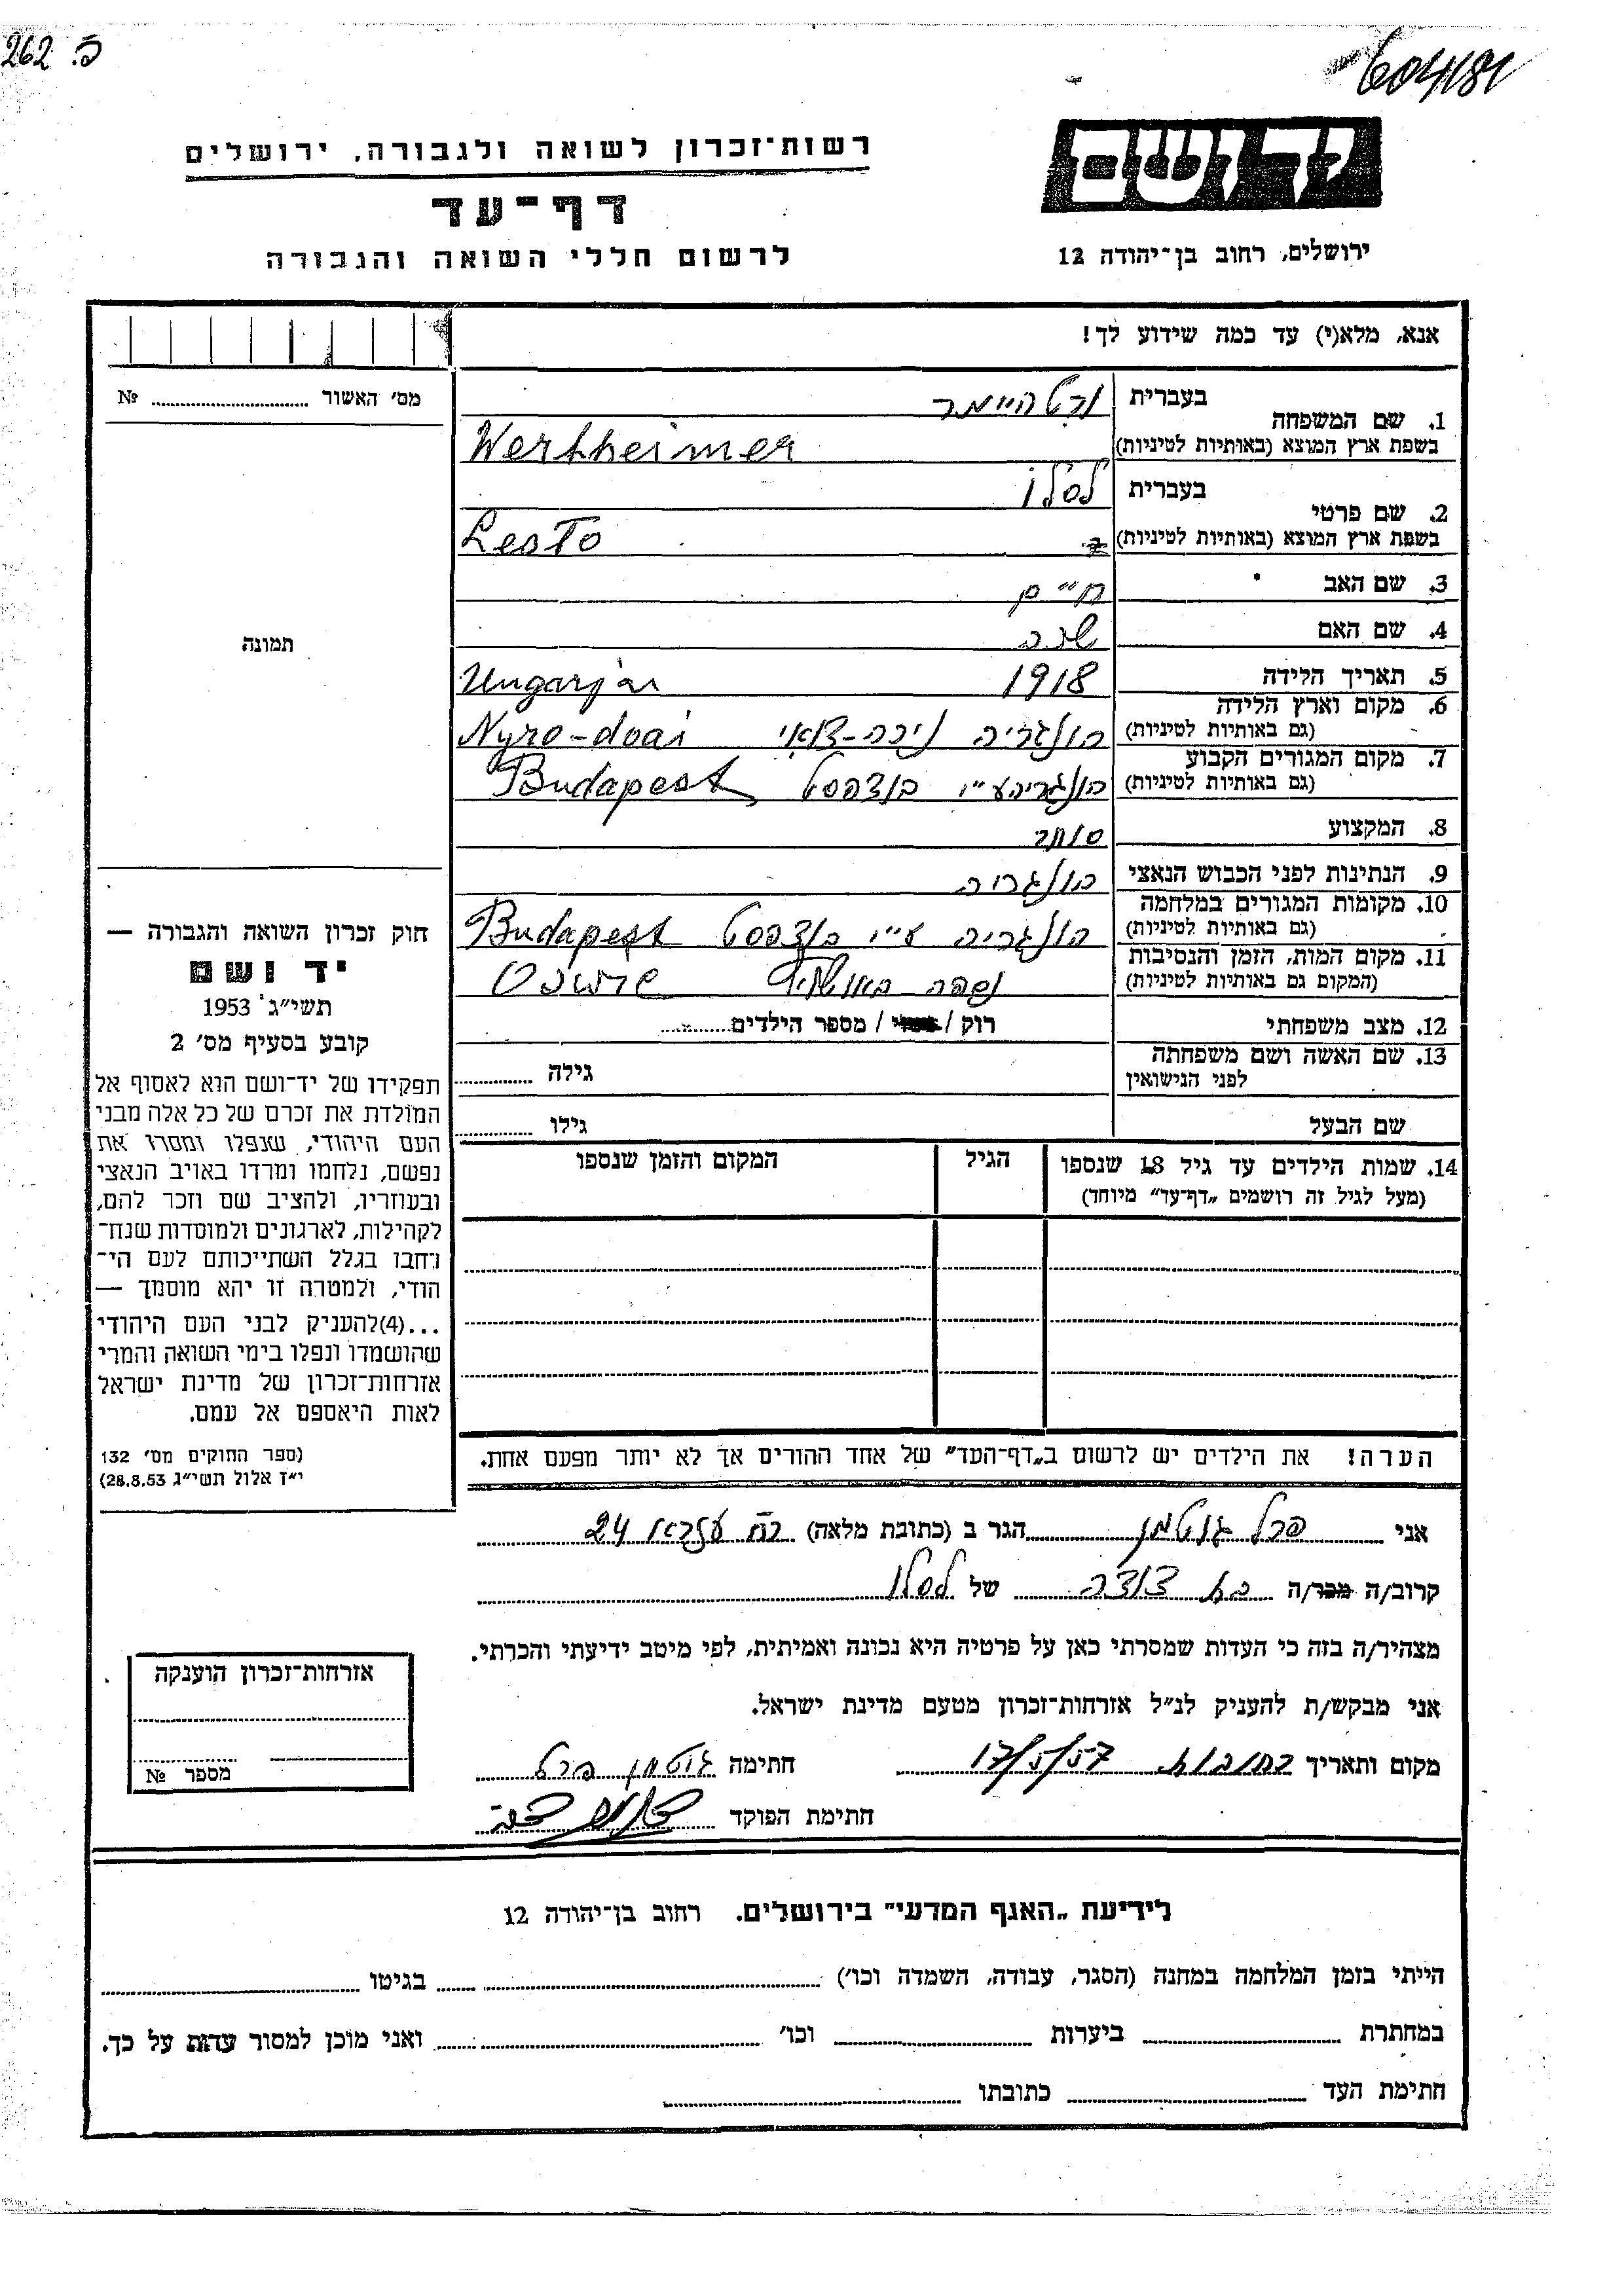 262 .פ
604181
יד ושם
ירושלים, רחוב בן־יהודה 12
רשות־זכרון לשואה ולגבורה, ירושלים
דף־עד
לרשום חללי השואה והגבורה
אנא, מלא(י) עד כמה שידוע לך!
מס׳ האשור № 
תמונה
1. שם המשפחה
בעברית ורטהיימר
בשפת ארץ המוצא (באותיות לטיניות) Wertheimer
2. שם פרטי
בעברית לסלו
בשפת ארץ המוצא (באותיות לטיניות)
3. שם האב חיים
4. שם האם שרה
5. תאריך הלידה 1918
6. מקום וארץ הלידה Ungarjan
(גם באותיות לטיניות) הונגריה Nyro-doai
7. מקום המגורים הקבוע
(גם באותיות לטיניות) הונגריה ע״י בודפסט Budapest
8. המקצוע סוחר
9. הנתינות לפני הכבוש הנאצי הונגריה
10. מקומות המגורים במלחמה
(גם באותיות לטיניות) הונגריה ע״י בודפסט Budapest
11. מקום המות, הזמן והנסיבות
(המקום גם באותיות לטיניות) נספה באושויץ
12. מצב משפחתי רוק / נשוי / מספר הילדים
13. שם האשה ושם משפחתה
לפני הנישואין גילה
שם הבעל גילו
14. שמות הילדים עד גיל 18 שנספו הגיל המקום והזמן שנספו
(מעל לגיל זה רושמים „דף־עד״ מיוחד)
הערה! את הילדים יש לרשום ב„דף־העד״ של אחד ההורים אך לא יותר מפעם אחת.
חוק זכרון השואה והגבורה —
יד ושם
תשי״ג 1953
קובע בסעיף מס׳ 2
תפקידו של יד־ושם הוא לאסוף אל
המולדת את זכרם של כל אלה מבני
העם היהודי, שנפלו ומסרו את
נפשם, נלחמו ומרדו באויב הנאצי
ובעוזריו, ולהציב שם וזכר להם,
לקהילות, לארגונים ולמוסדות שנח־
רחבו בגלל השתייכותם לעם הי־
הודי, ולמטרה זו יהא מוסמך —
...(4)להעניק לבני העם היהודי
שהושמדו ונפלו בימי השואה והמרי
אזרחות־זכרון של מדינת ישראל
לאות היאספם אל עמם.
(ספר החוקים מס׳ 132
י״ז אלול תשי״ג 28.8.53)
אני פרל גוטמן הגר ב (כתובת מלאה) רח׳ עזרא 24
קרוב/ה מכר/ה בת דודה של לסלו
מצהיר/ה בזה כי העדות שמסרתי כאן על פרטיה היא נכונה ואמיתית, לפי מיטב ידיעתי והכרתי.
אני מבקש/ת להעניק לנ״ל אזרחות־זכרון מטעם מדינת ישראל.
מקום ותאריך רחובות 17/5/57 חתימה גוטמן פרל
חתימת הפוקד
אזרחות־זכרון הוענקה
מספר №
לידיעת „האגף המדעי״ בירושלים. רחוב בן־יהודה 12
הייתי בזמן המלחמה במחנה (הסגר, עבודה, השמדה וכו׳) בגיטו
במחתרת ביערות וכו׳ ואני מוכן למסור עדות על כך.
חתימת העד כתובתו